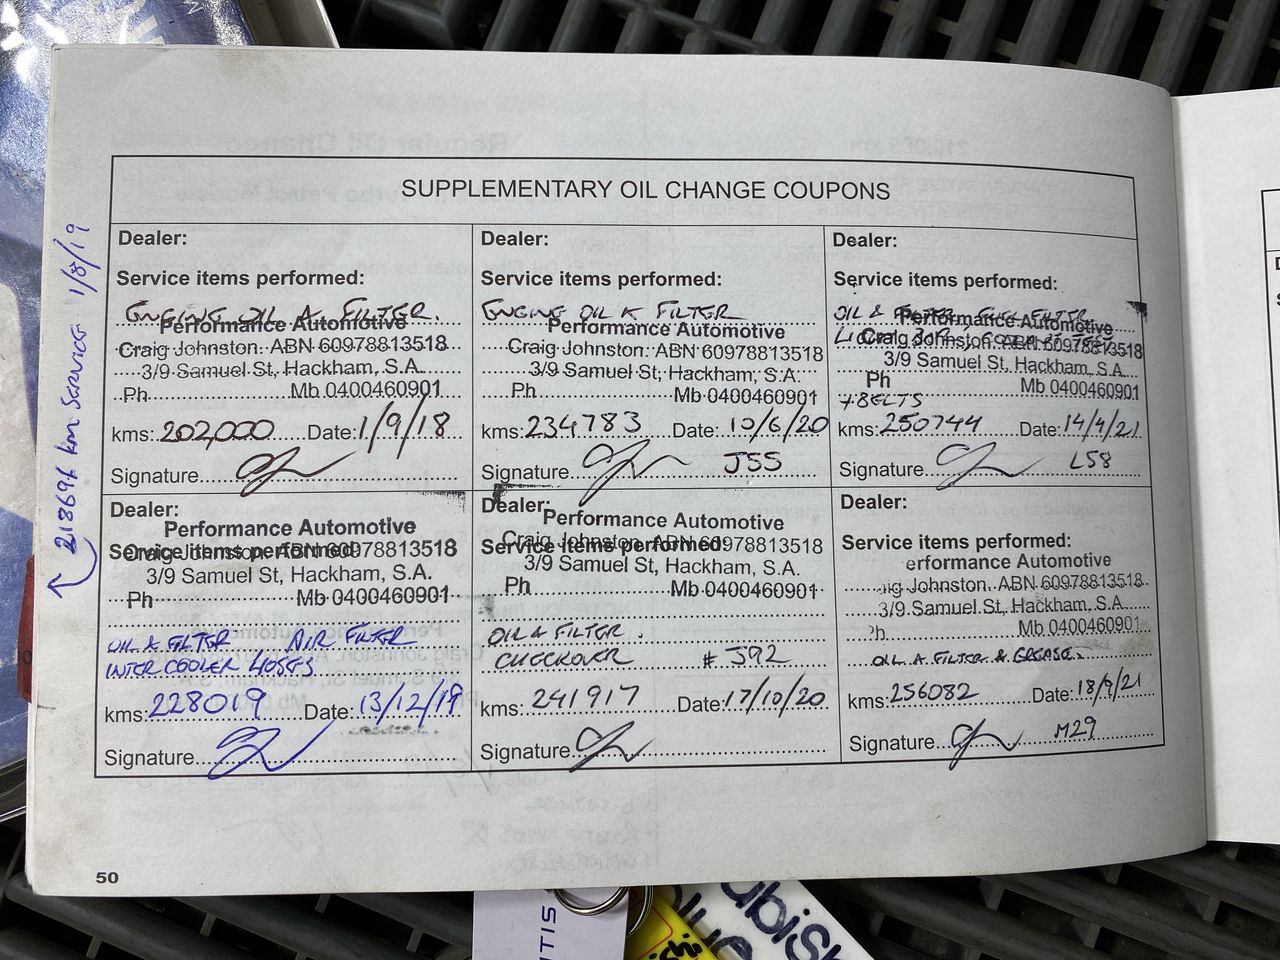 SUPPLEMENTARY OIL CHANGE COUPONS
Dealer:
Service items performed:
ENGINE OIL & FILTER.
Performance Automotive
Craig Johnston ABN 60978813518
3/9 Samuel St, Hackham, S.A.
Ph Mb 0400460901
kms: 202,000 Date: 1/9/18
Signature
Dealer:
Service items performed:
ENGINE OIL & FILTER
Performance Automotive
Craig Johnston ABN 60978813518
3/9 Samuel St, Hackham, S.A.
Ph Mb 0400460901
kms: 234783 Date: 10/6/20
Signature J55
Dealer:
Service items performed:
OIL & FILTER, FUEL FILTER
Performance Automotive
Craig Johnston ABN 60978813518
3/9 Samuel St, Hackham, S.A.
Ph Mb 0400460901
+ BELTS
kms: 250744 Date: 14/4/21
Signature L58
Dealer:
Performance Automotive
Service items performed:
Craig Johnston ABN 60978813518
3/9 Samuel St, Hackham, S.A.
Ph Mb 0400460901
OIL & FILTER AIR FILTER
INTERCOOLER HOSES
kms: 228019 Date: 13/12/19
Signature
Dealer:
Performance Automotive
Service items performed:
Craig Johnston ABN 60978813518
3/9 Samuel St, Hackham, S.A.
Ph Mb 0400460901
OIL & FILTER.
CHECKOVER # J92
kms: 241917 Date: 17/10/20
Signature
Dealer:
Service items performed:
erformance Automotive
aig Johnston ABN 60978813518
3/9 Samuel St, Hackham, S.A.
Ph Mb 0400460901
OIL & FILTER & GREASE.
kms: 256082 Date: 18/9/21
Signature M29
218696 km SERVICE 1/8/19
50
TIS